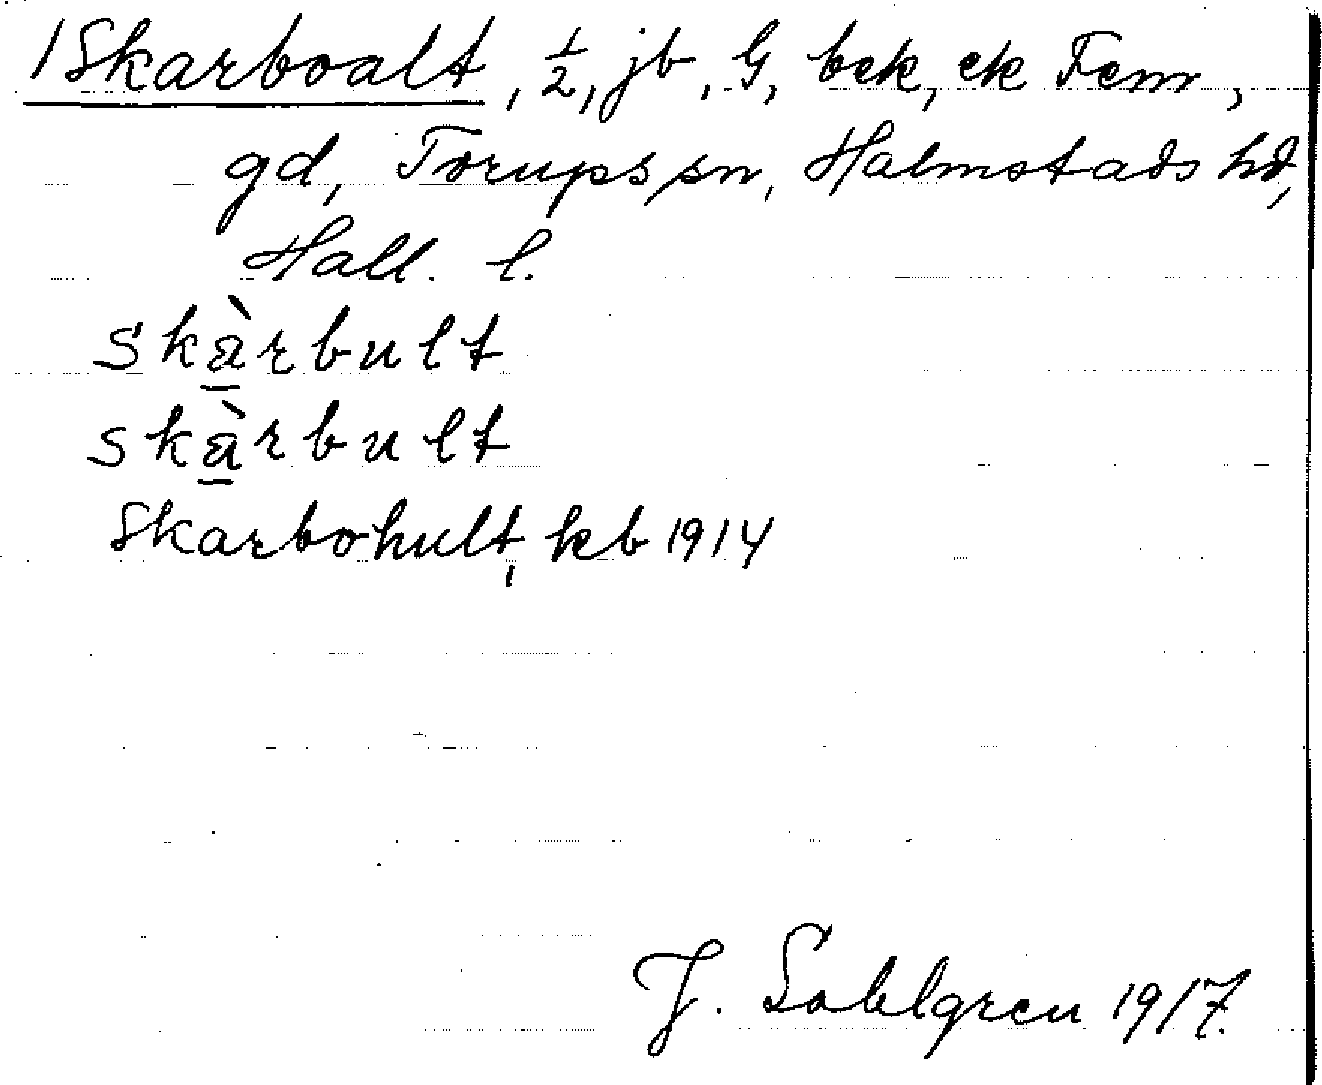 1 Skarboalt, ½, jb, G, bek, ek Fem,
gd, Torups sn, Halmstads hd,
Hall. l.
skàrbult
skàrbult
Skarbohult, kb 1914
J. Sahlgren 1917.